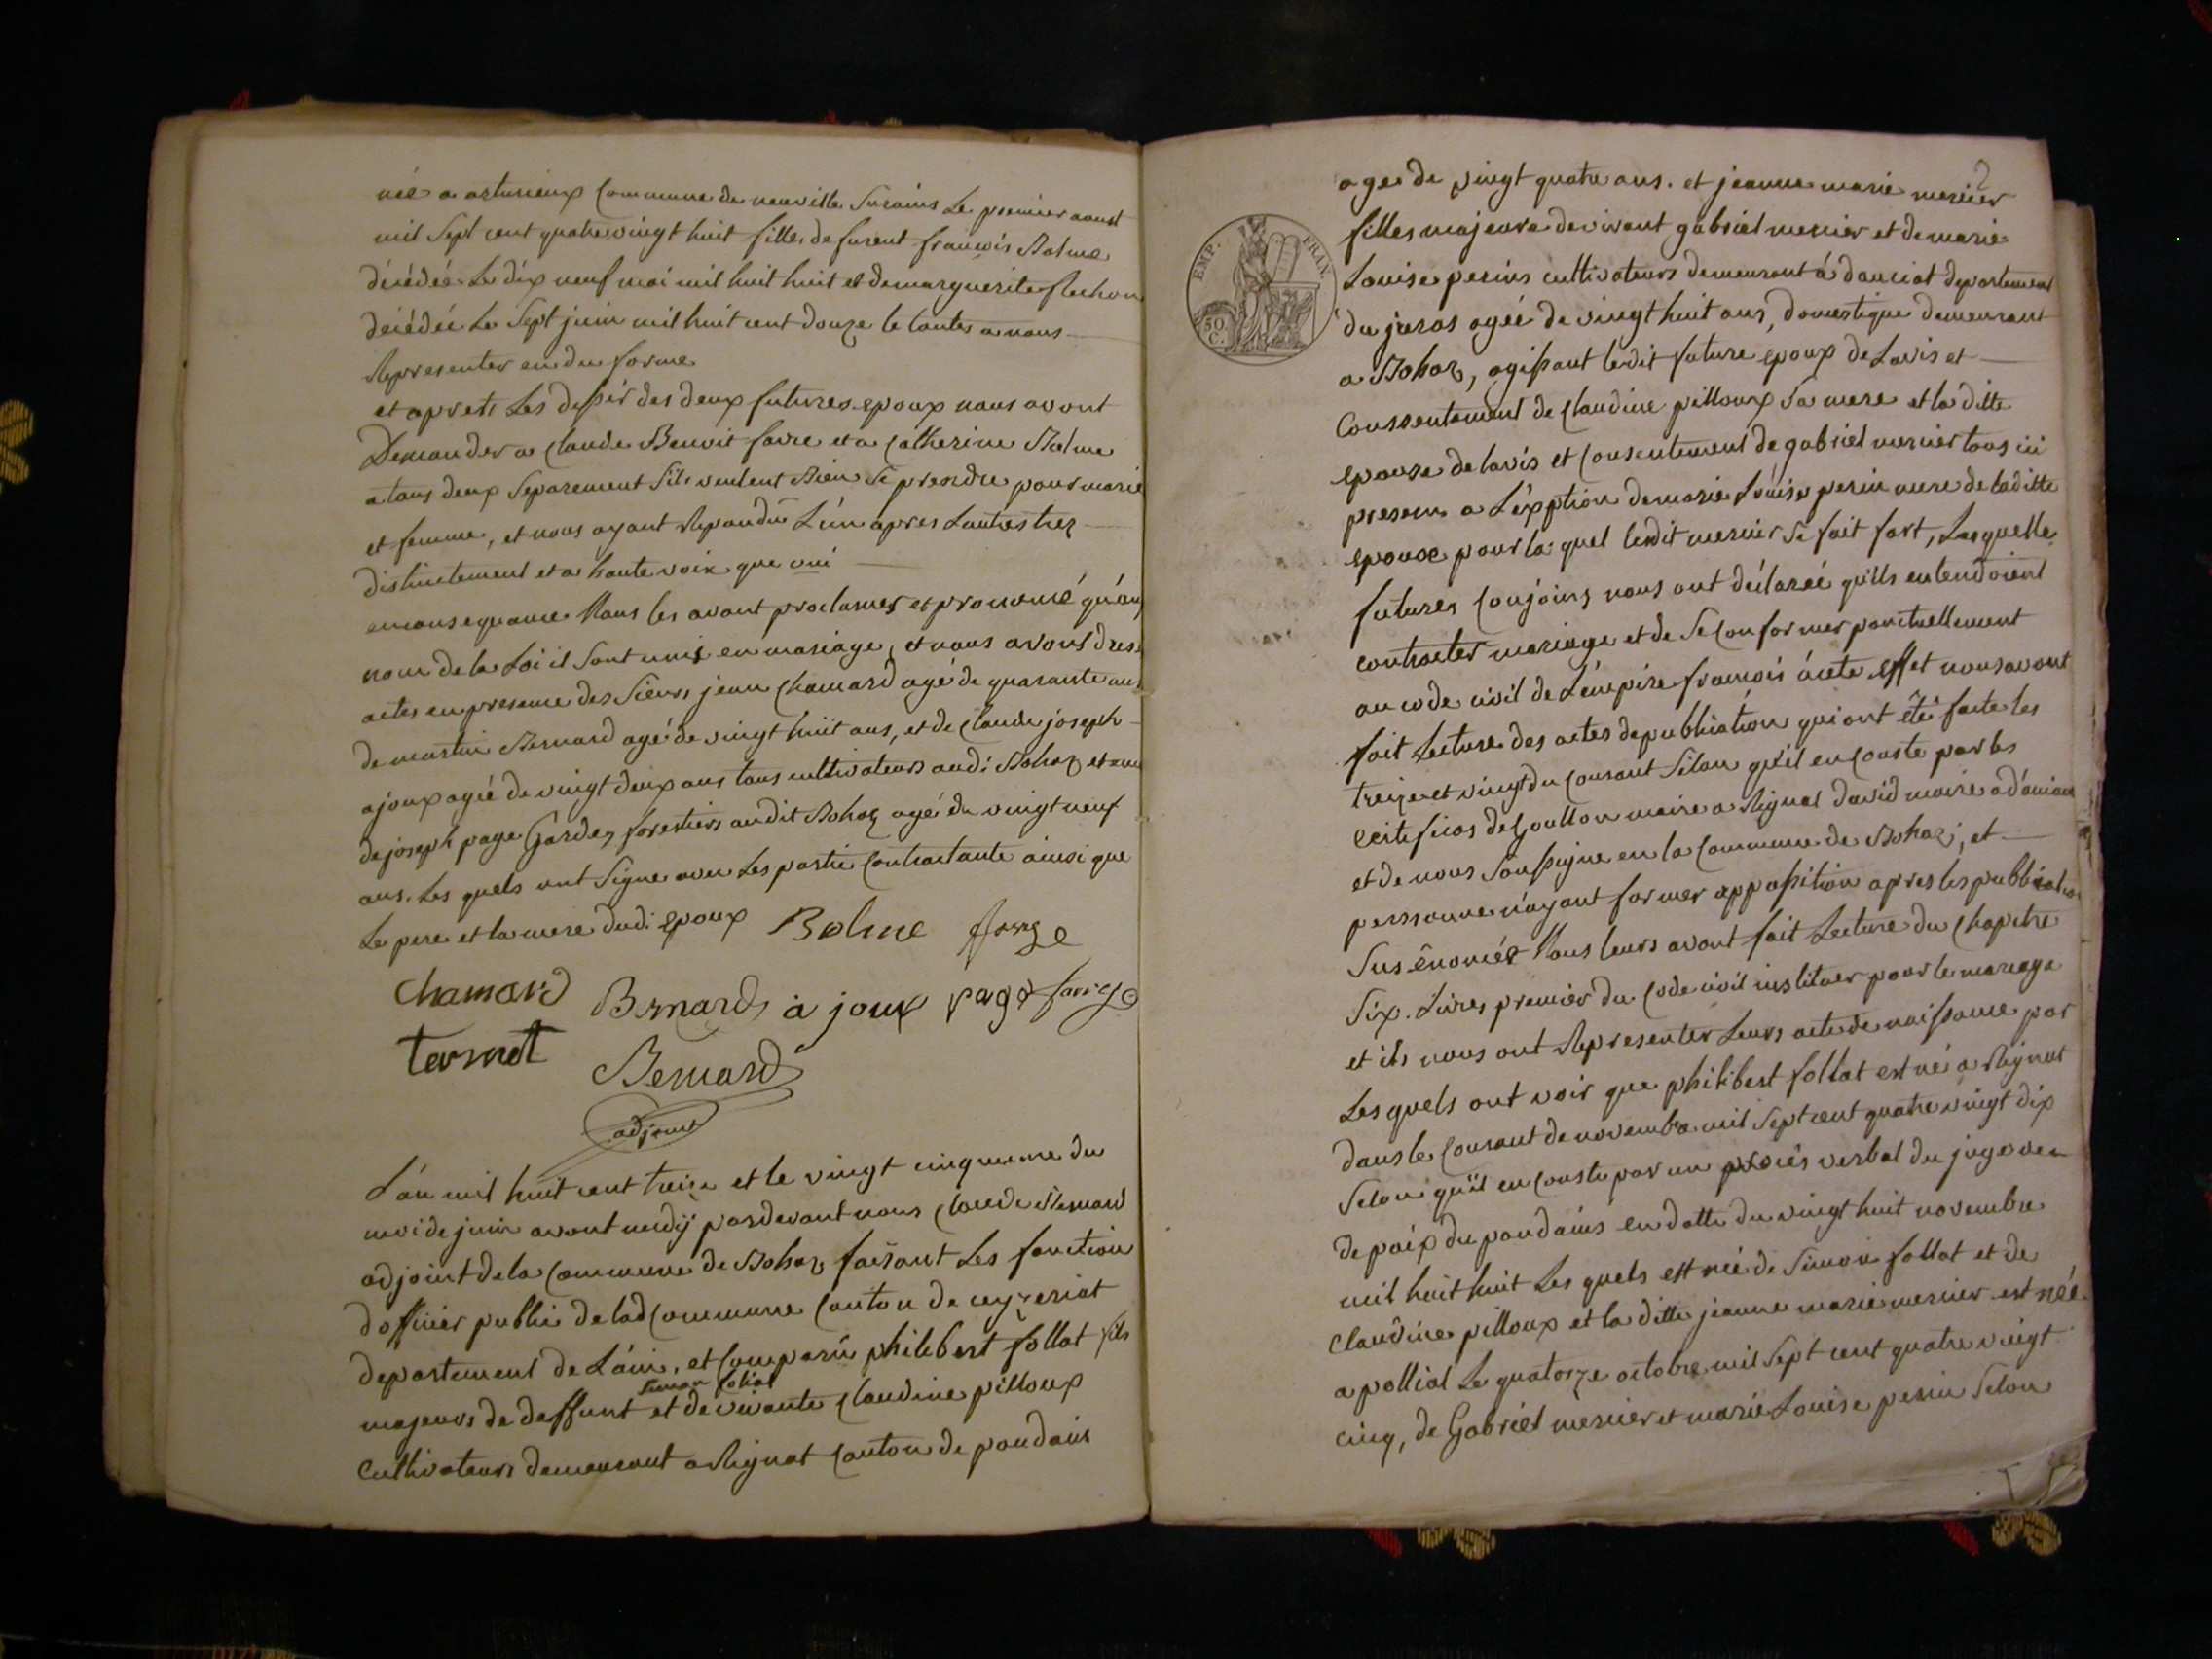 née a arturieux Commune de neuville Surains Le premier aoust
mil Sept cent quatre vingt huit filles de furent francois Balme
décédée Le dix neuf mai mil huit huit et de marguerite flechon
décédée Le Sept juin mil huit cent douze le toutes a nous
Representer en du forme
et aprets Les desir des deux futures epoux nous avont
Demander a Claude Benoit favre et a Catherine Balme
a tous deux Separement Sils veulent Bien Se prendre pour marie
et femme, et nous ayant Repondu L'un apres Lautres trez
distinctement et a haute voix que oui
en consequance Nous les avont proclamer et prononcé qu'au
nom de la Loi il Sont unis en mariage, et nous avons dres
actes en presence des Sieurs jean Chamard agé de quarante ans
de martin Bernard agé de vingt huit ans, et de Claude joseph
ajoux agée de vingt deux ans tous cultivateurs aud: Bohaz et
de joseph page Gardes forestiers audit Bohaz agé de vingt neuf
ans. Les quels ont Signe avec Les partie Contractante ainsi que
Le pere et la mere dud: epoux Balme
Chamard Bernard à joux page
ternet Bernard
adjoint
L'án mil huit cent treize et le vingt cinquieme du
moi de juin avant midÿ pardevant nous Claude Bernard
adjoint de la Commune de Bohaz faisant Les fonction
dofficier public de lad Commune Canton de ceyzeriat
departement de L'áin, et Comparu philibert follat fils
Simon follat
majeurs de deffunt et de vivante Claudine pilloux
Cultivateurs demeurant a Rignat Canton de pondains
2
EMP. FRAN.
50 C.
age de vingt quatre ans. et jeanne marie mercier
filles majeure de vivant gabriel mercier et de marie
Louise perin cultivateurs demeurant á danciat departement
du juras agée de vingt huit ans, domestique demeurant
a Bohaz, agissant ledit future epoux de Lavis et
Conssentement de Claudine pilloux Sa mere et la ditte
epouse de lavis et Consentement de gabriel mercier tous ici
presens a L'éxption de marie Louise perin mere de laditte
epouse pour la quel ledit mercier Se fait fort, Lesquelle
futures Conjoins nous ont déclarée qu'ils entendoient
contracter mariage et de Se Conformer ponctuellement
au code civil de L'émpire françois á cete effet nous avont
fait Lecture des actes de publication qui ont êté faite les
treize et vingt du Courant Selon qu'il en Conste par les
certeficas de Goullon maire a Rignat David maire a
et de nous Soussigne en la Commune de Bohaz, et
perssonne n'ayant former oppossition apres les publication
Sus énoncés Nous leurs avont fait Lecture du Chapitre
Six. Livres premier du Code civil instituer pour le mariage
et ils nous ont Representer Leurs acte de naissance par
Lesquels ont voir que philibert follat est né a Rignat
dans le Courant de novembre mil Sept cent quatre vingt dix
Selon qu'il en Conste par un procês verbal du juge
de paix du pondains en datte du vingt huit novembre
mil huit huit Les quels est née de Simon follat et de
Claudine pilloux et la ditte jeanne marie mercier est née
a polliat Le quatorze octobre mil Sept cent quatre vingt
cinq, de Gabriel mercier et marie Louise perin Selon